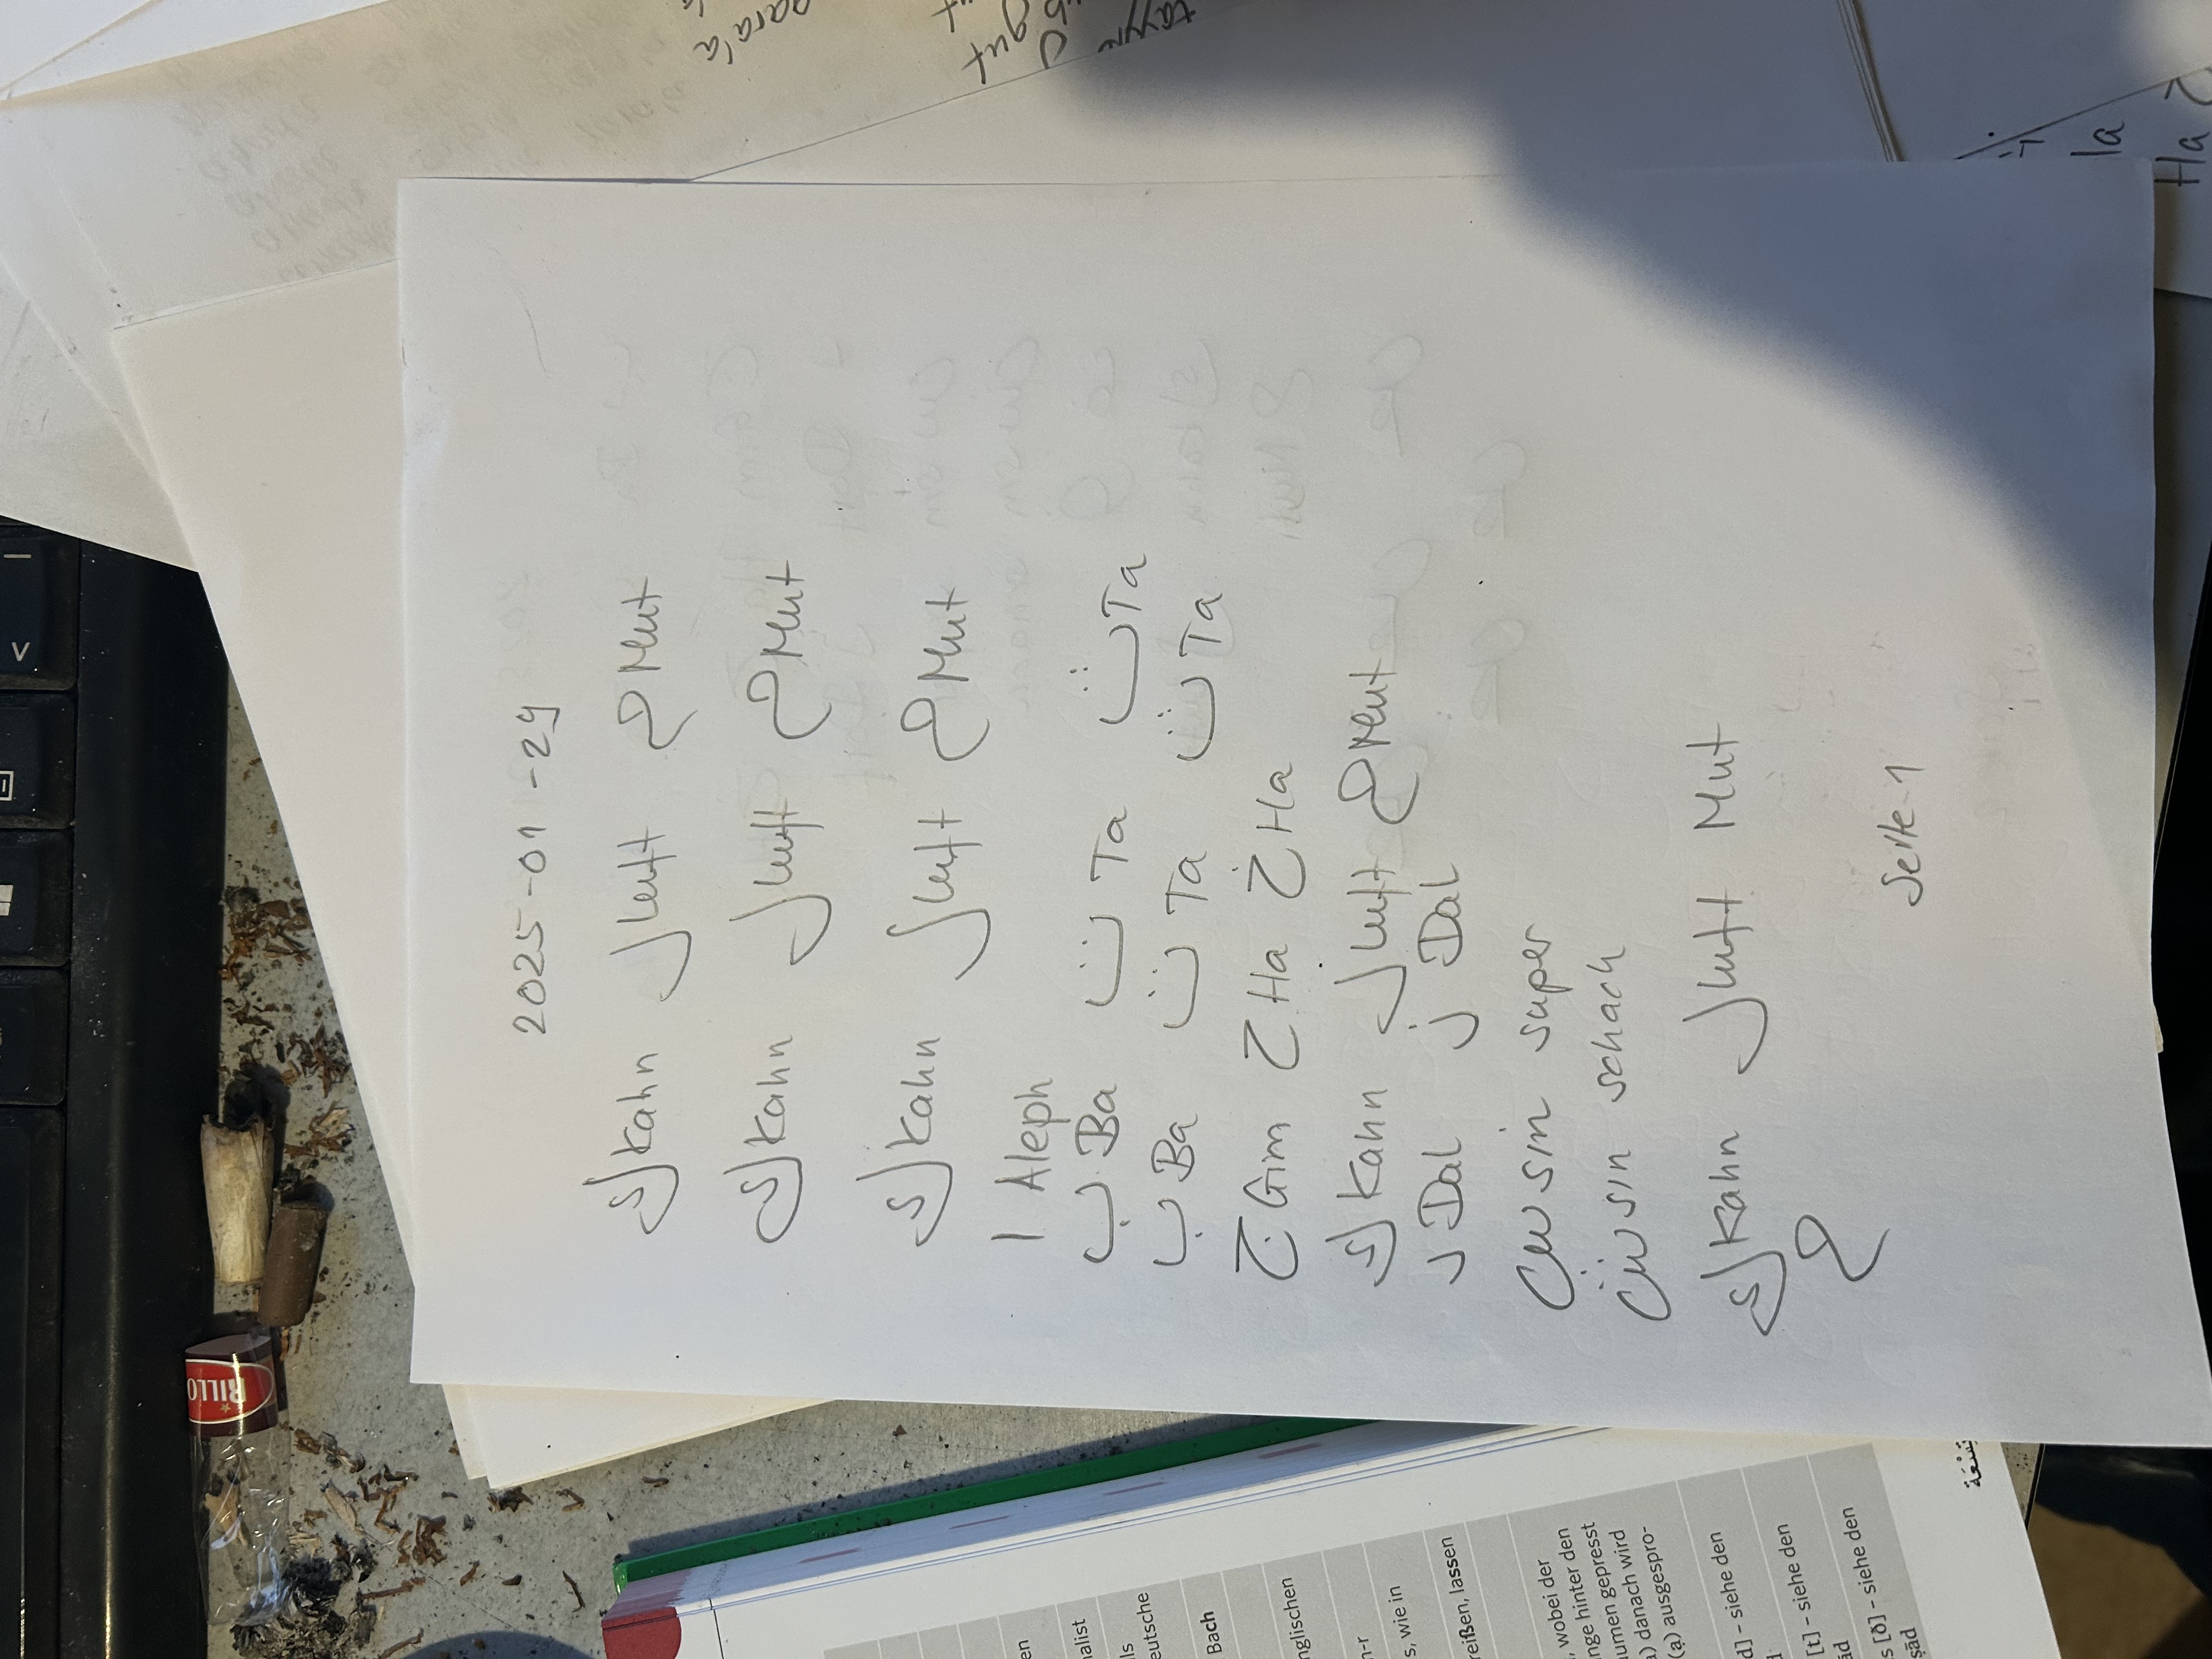 2025-01-29
ك Kahn ل luft م Mut
ك Kahn ل luft م Mut
ك Kahn ل luft م Mut
ا Aleph
ب Ba ت Ta ث Ta
ب Ba ت Ta ث Ta
ج Gim ح Ha خ Ha
ك Kahn ل luft م Mut
د Dal ذ Dal
س sin super
ش sin schach
ك Kahn ل luft Mut
م
Seite 1
parala
gut
la
Ha
V
RILLO
en
nalist
ls
eutsche
Bach
nglischen
n-r
s, wie in
reißen, lassen
, wobei der
nge hinter den
umen gepresst
) danach wird
(ạ) ausgespro-
d] – siehe den
d
[t] – siehe den
ād
s [ð] – siehe den
ṣād